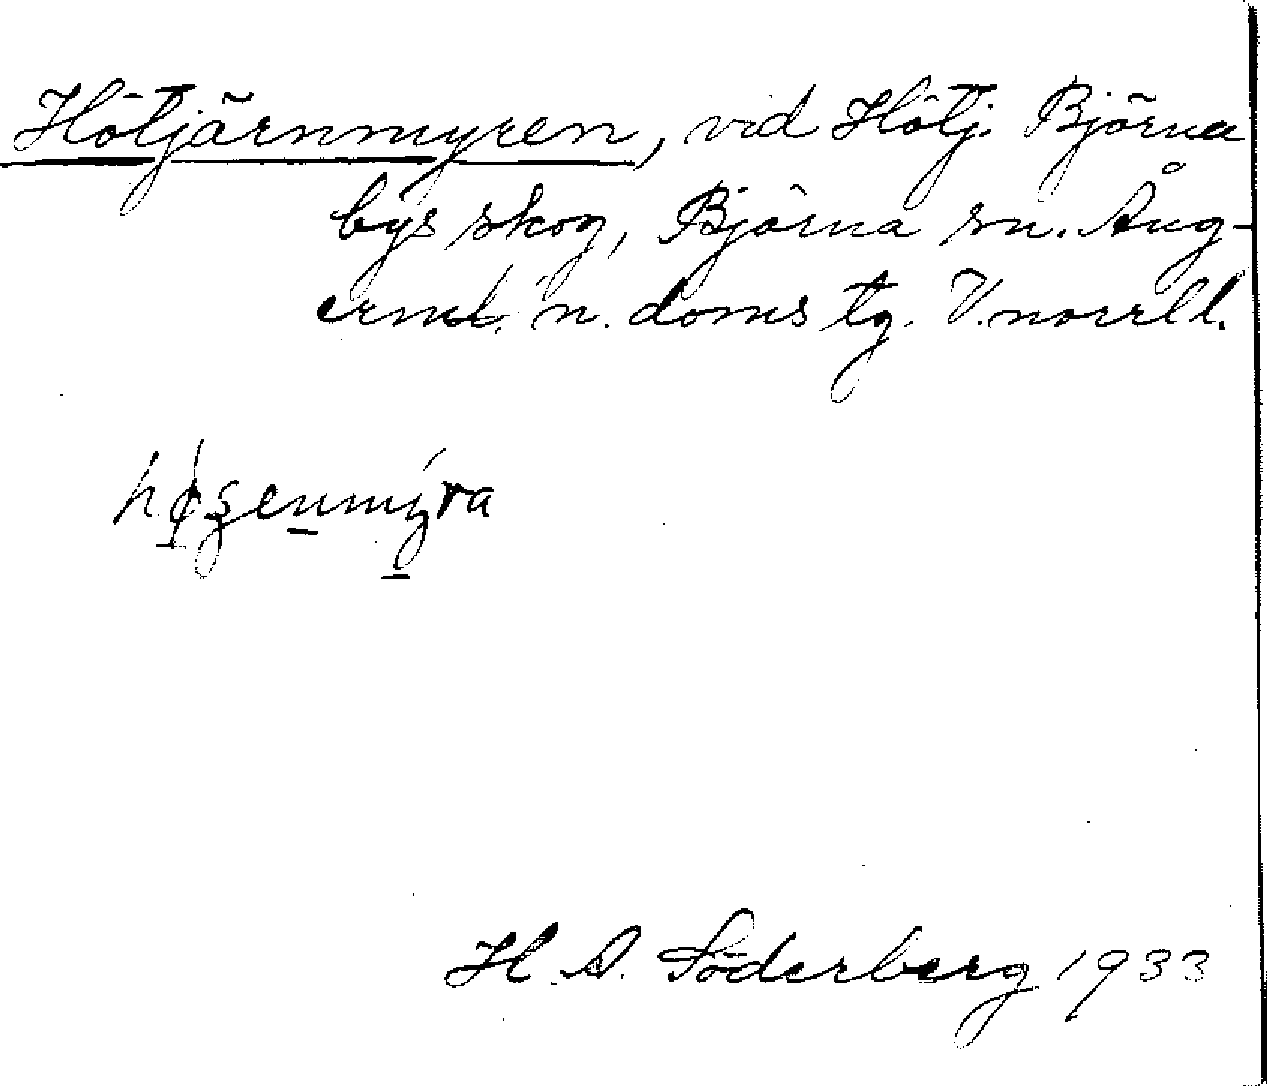 Hötjärnmyren, vid Hötj. Björna
bys skog, Björna sn. Ång-
erml. n. doms tg. V.norrl l.
H. A. Söderberg 1933